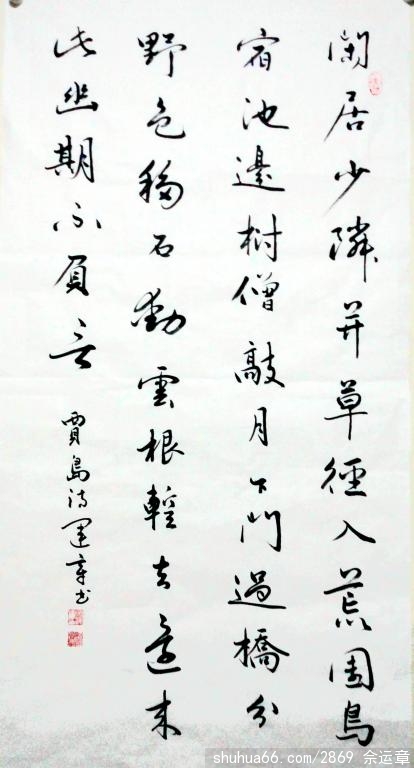 閑居少隣并草徑入荒園鳥
宿池邊樹僧敲月下門過橋分
野色移石動雲根輕去還来
此幽期不負言
賈島詩運章书
shuhua66.com/2869 佘运章